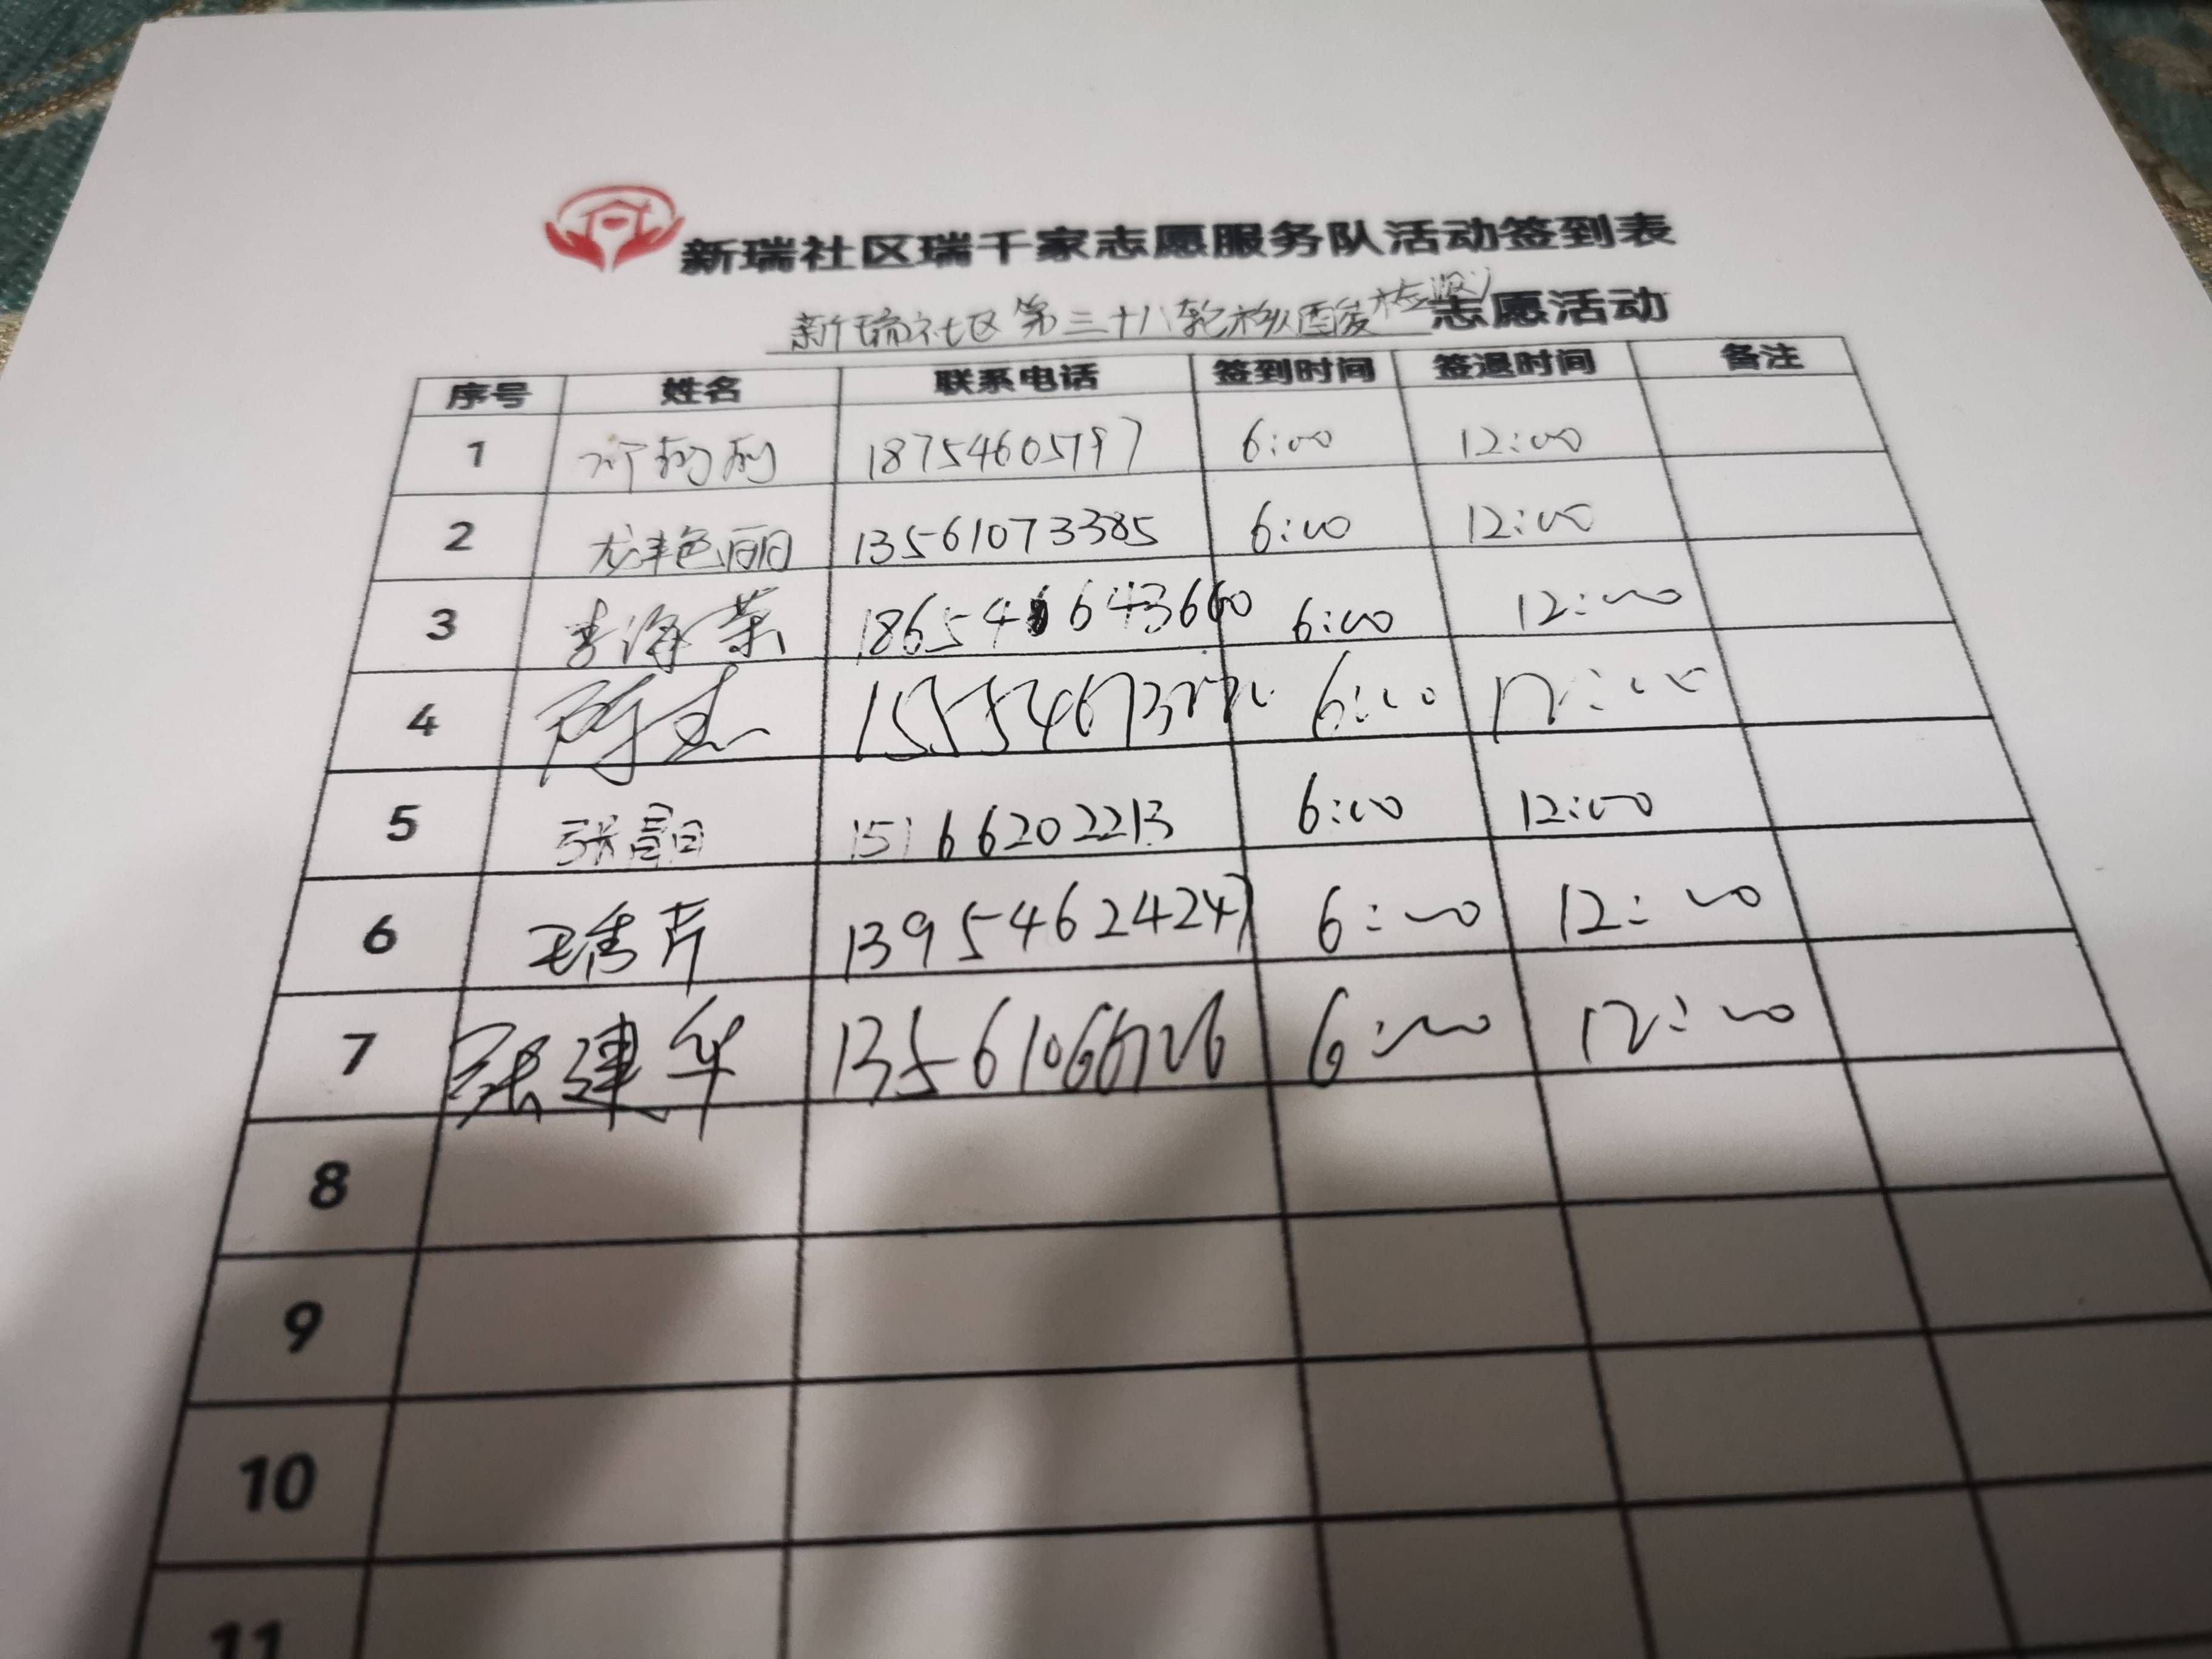 新瑞社区瑞千家志愿服务队活动签到表
新瑞社区第三十八轮核酸检测志愿活动
序号 姓名 联系电话 签到时间 签退时间 备注
1 18754605797 6:00 12:00
2 尤艳丽 13561073385 6:00 12:00
3 李海荣 18654643660 6:00 12:00
4 6:00 12:00
5 张晶 15166202213 6:00 12:00
6 王秀芹 13954624247 6:00 12:00
7 张建华 6:00 12:00
8
9
10
11